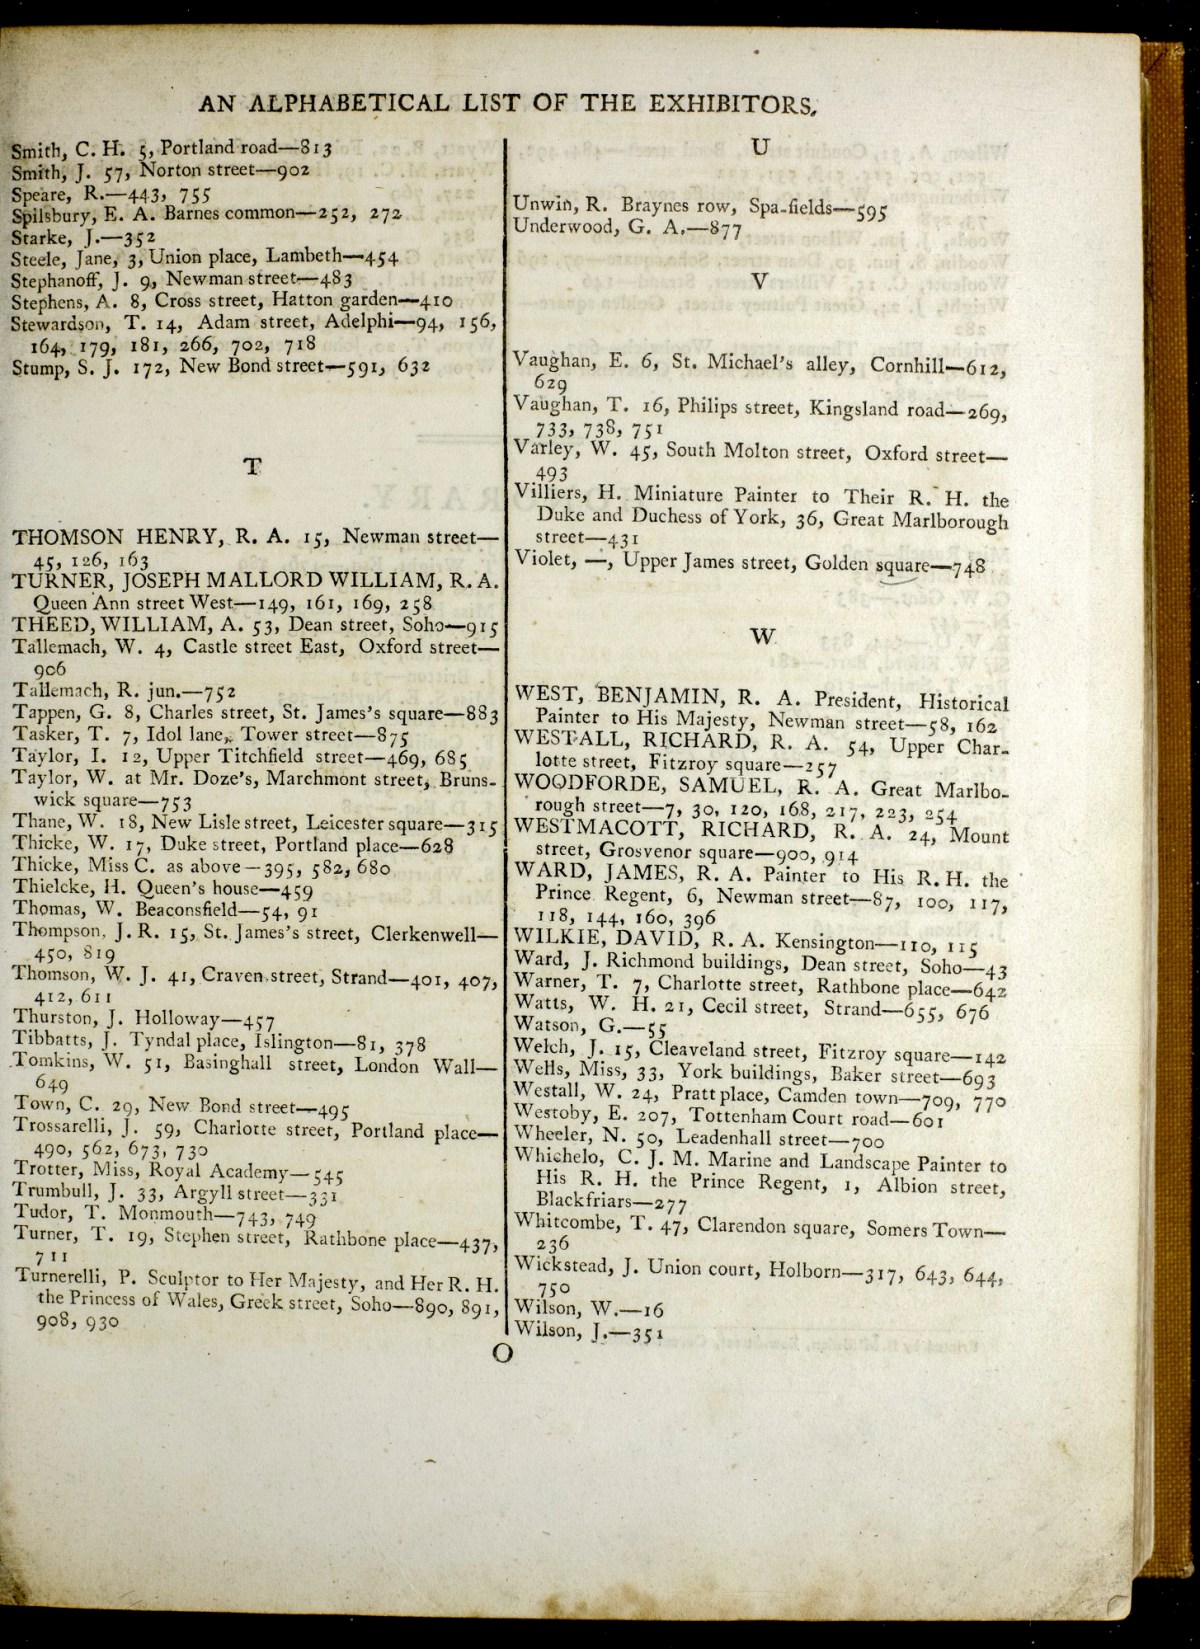 AN ALPHABETICAL LIST OF THE EXHIBITORS.
Smith, C. H. 5, Portland road—813
Smith, J. 57, Norton street—902
Speare, R.—443, 755
Spilsbury, E. A. Barnes common—252, 272
Starke, J.—352
Steele, Jane, 3, Union place, Lambeth—454
Stephanoff, J. 9, Newman street—483
Stephens, A. 8, Cross street, Hatton garden—410
Stewardson, T. 14, Adam street, Adelphi—94, 156,
164, 179, 181, 266, 702, 718
Stump, S. J. 172, New Bond street—591, 632
T
THOMSON HENRY, R. A. 15, Newman street—
45, 126, 163
TURNER, JOSEPH MALLORD WILLIAM, R. A.
Queen Ann street West—149, 161, 169, 258
THEED, WILLIAM, A. 53, Dean street, Soho—915
Tallemach, W. 4, Castle street East, Oxford street—
906
Tallemach, R. jun.—752
Tappen, G. 8, Charles street, St. James's square—883
Tasker, T. 7, Idol lane, Tower street—875
Taylor, I. 12, Upper Titchfield street—469, 685
Taylor, W. at Mr. Doze's, Marchmont street, Bruns-
wick square—753
Thane, W. 18, New Lisle street, Leicester square—315
Thicke, W. 17, Duke street, Portland place—628
Thicke, Miss C. as above—395, 582, 680
Thielcke, H. Queen's house—459
Thomas, W. Beaconsfield—54, 91
Thompson, J. R. 15, St. James's street, Clerkenwell—
450, 819
Thomson, W. J. 41, Craven street, Strand—401, 407,
412, 611
Thurston, J. Holloway—457
Tibbatts, J. Tyndal place, Islington—81, 378
Tomkins, W. 51, Basinghall street, London Wall—
649
Town, C. 29, New Bond street—495
Trossarelli, J. 59, Charlotte street, Portland place—
490, 562, 673, 730
Trotter, Miss, Royal Academy—545
Trumbull, J. 33, Argyll street—331
Tudor, T. Monmouth—743, 749
Turner, T. 19, Stephen street, Rathbone place—437,
711
Turnerelli, P. Sculptor to Her Majesty, and Her R. H.
the Princess of Wales, Greek street, Soho—890, 891,
908, 930
U
Unwin, R. Braynes row, Spa-fields—595
Underwood, G. A.—877
V
Vaughan, E. 6, St. Michael's alley, Cornhill—612,
629
Vaughan, T. 16, Philips street, Kingsland road—269,
733, 738, 751
Varley, W. 45, South Molton street, Oxford street—
493
Villiers, H. Miniature Painter to Their R. H. the
Duke and Duchess of York, 36, Great Marlborough
street—431
Violet, —, Upper James street, Golden square—748
W
WEST, BENJAMIN, R. A. President, Historical
Painter to His Majesty, Newman street—58, 162
WESTALL, RICHARD, R. A. 54, Upper Char-
lotte street, Fitzroy square—257
WOODFORDE, SAMUEL, R. A. Great Marlbo-
rough street—7, 30, 120, 168, 217, 223, 254
WESTMACOTT, RICHARD, R. A. 24, Mount
street, Grosvenor square—900, 914
WARD, JAMES, R. A. Painter to His R. H. the
Prince Regent, 6, Newman street—87, 100, 117,
118, 144, 160, 396
WILKIE, DAVID, R. A. Kensington—110, 115
Ward, J. Richmond buildings, Dean street, Soho—43
Warner, T. 7, Charlotte street, Rathbone place—642
Watts, W. H. 21, Cecil street, Strand—655, 676
Watson, G.—55
Welch, J. 15, Cleaveland street, Fitzroy square—142
Wells, Miss, 33, York buildings, Baker street—693
Westall, W. 24, Pratt place, Camden town—709, 770
Westoby, E. 207, Tottenham Court road—601
Wheeler, N. 50, Leadenhall street—700
Whichelo, C. J. M. Marine and Landscape Painter to
His R. H. the Prince Regent, 1, Albion street,
Blackfriars—277
Whitcombe, T. 47, Clarendon square, Somers Town—
236
Wickstead, J. Union court, Holborn—317, 643, 644,
750
Wilson, W.—16
Wilson, J.—351
O